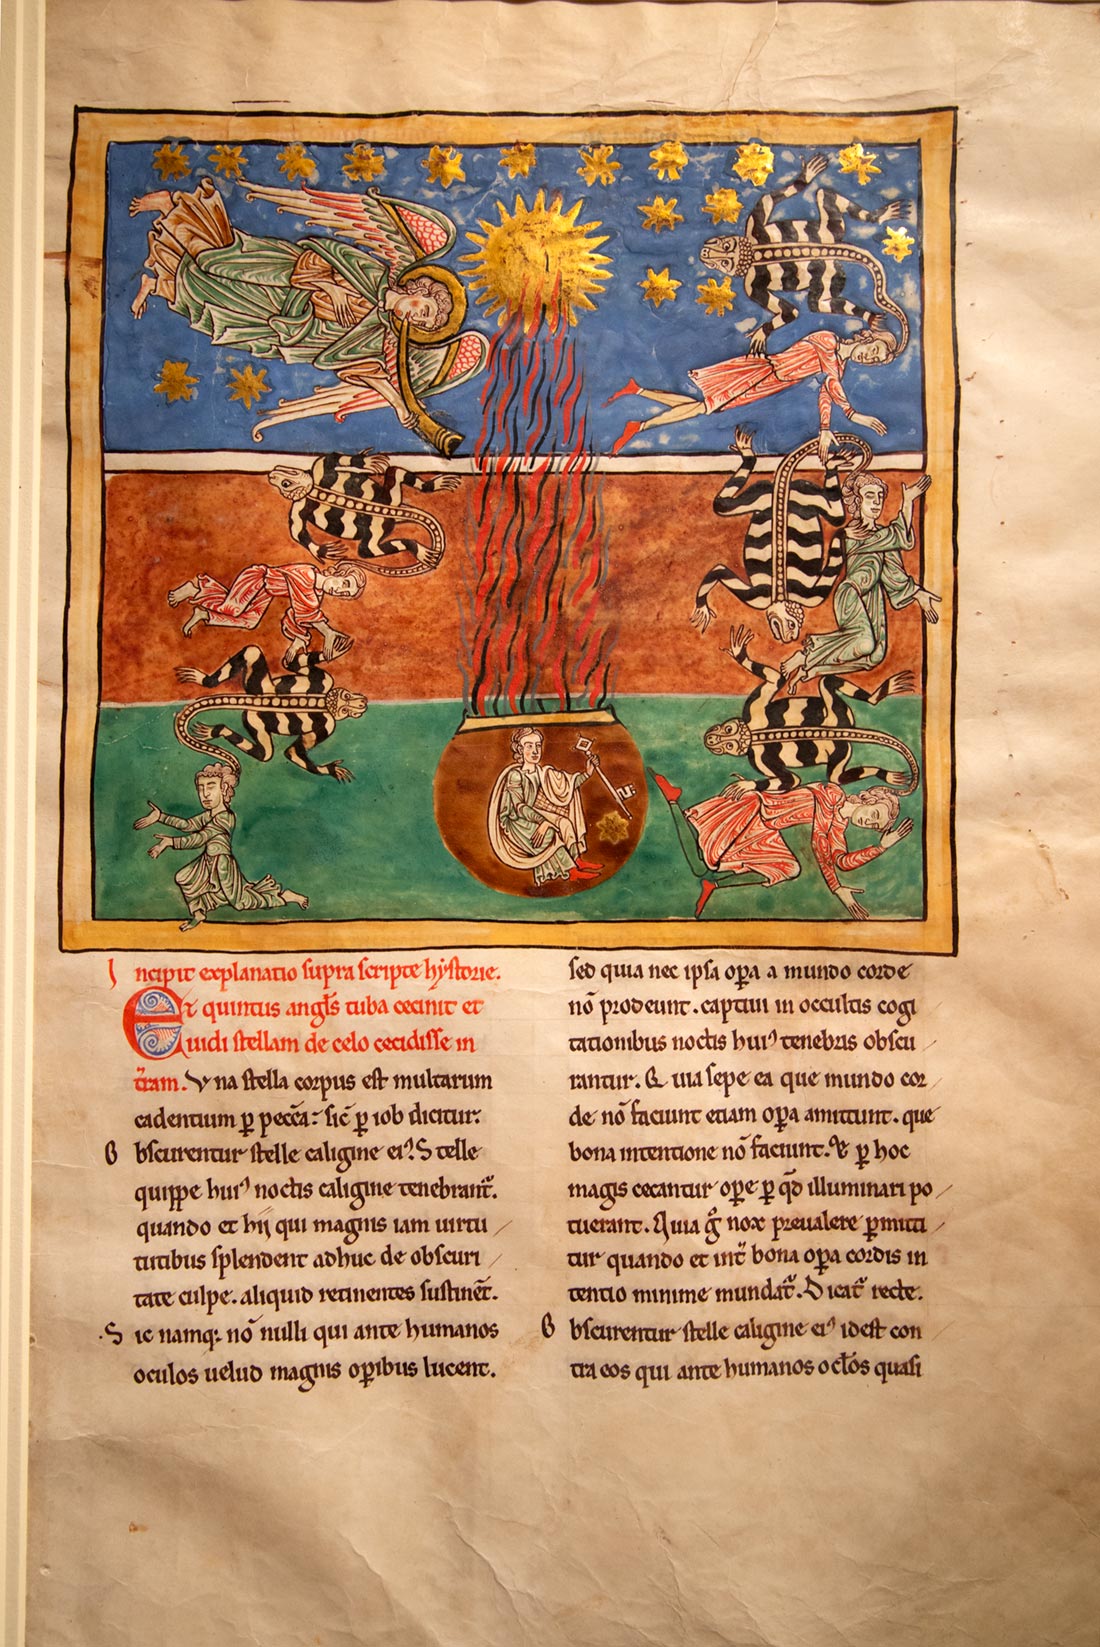 Incipit explanatio supra scripte hystorie.
Et quintus angl̄s tuba cecinit et
uidi stellam de celo cecidisse in
t̄ram. Vna stella corpus est multarum
cadentium ꝑ pecc̄a: sic̄ ꝑ iob dicitur:
Obscurentur stelle caligine ei⁹. Stelle
quippe hui⁹ noctis caligine tenebrant᷑.
quando et hij qui magnis iam uirtu
tutibus splendent adhuc de obscuri
tate culpe. aliquid retinentes sustinēt.
Sic namq; nō nulli qui ante humanos
oculos uelud magnis oꝑibus lucent.
sed quia nec ipsa oꝑa a mundo corde
nō prodeunt. captiui in occultis cogi
tationibus noctis hui⁹ tenebris obscu
rantur. Quia sepe ea que mundo cor
de nō faciunt etiam oꝑa amittunt. que
bona intentione nō faciunt. Et ꝑ hoc
magis cecantur oꝑe ꝑ qd̄ illuminari po
tuerant. Quia g̊ nox preualere ꝑmitti
tur quando et int̄ bona oꝑa cordis in
tentio minime mundat᷑. Dicat᷑ recte.
Obscurentur stelle caligine ei⁹ idest con
tra eos qui ante humanos ocl̄os quasi